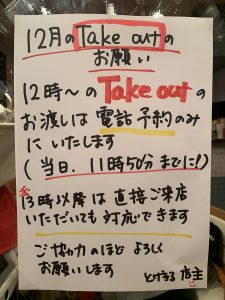 12月のTake outの
お願い
12時〜のTake outの
お渡しは電話予約のみ
にいたします
(当日、11時50分までに!)
※13時以降は直接ご来店
いただいても対応できます
ご協力のほどよろしく
お願いします
店主